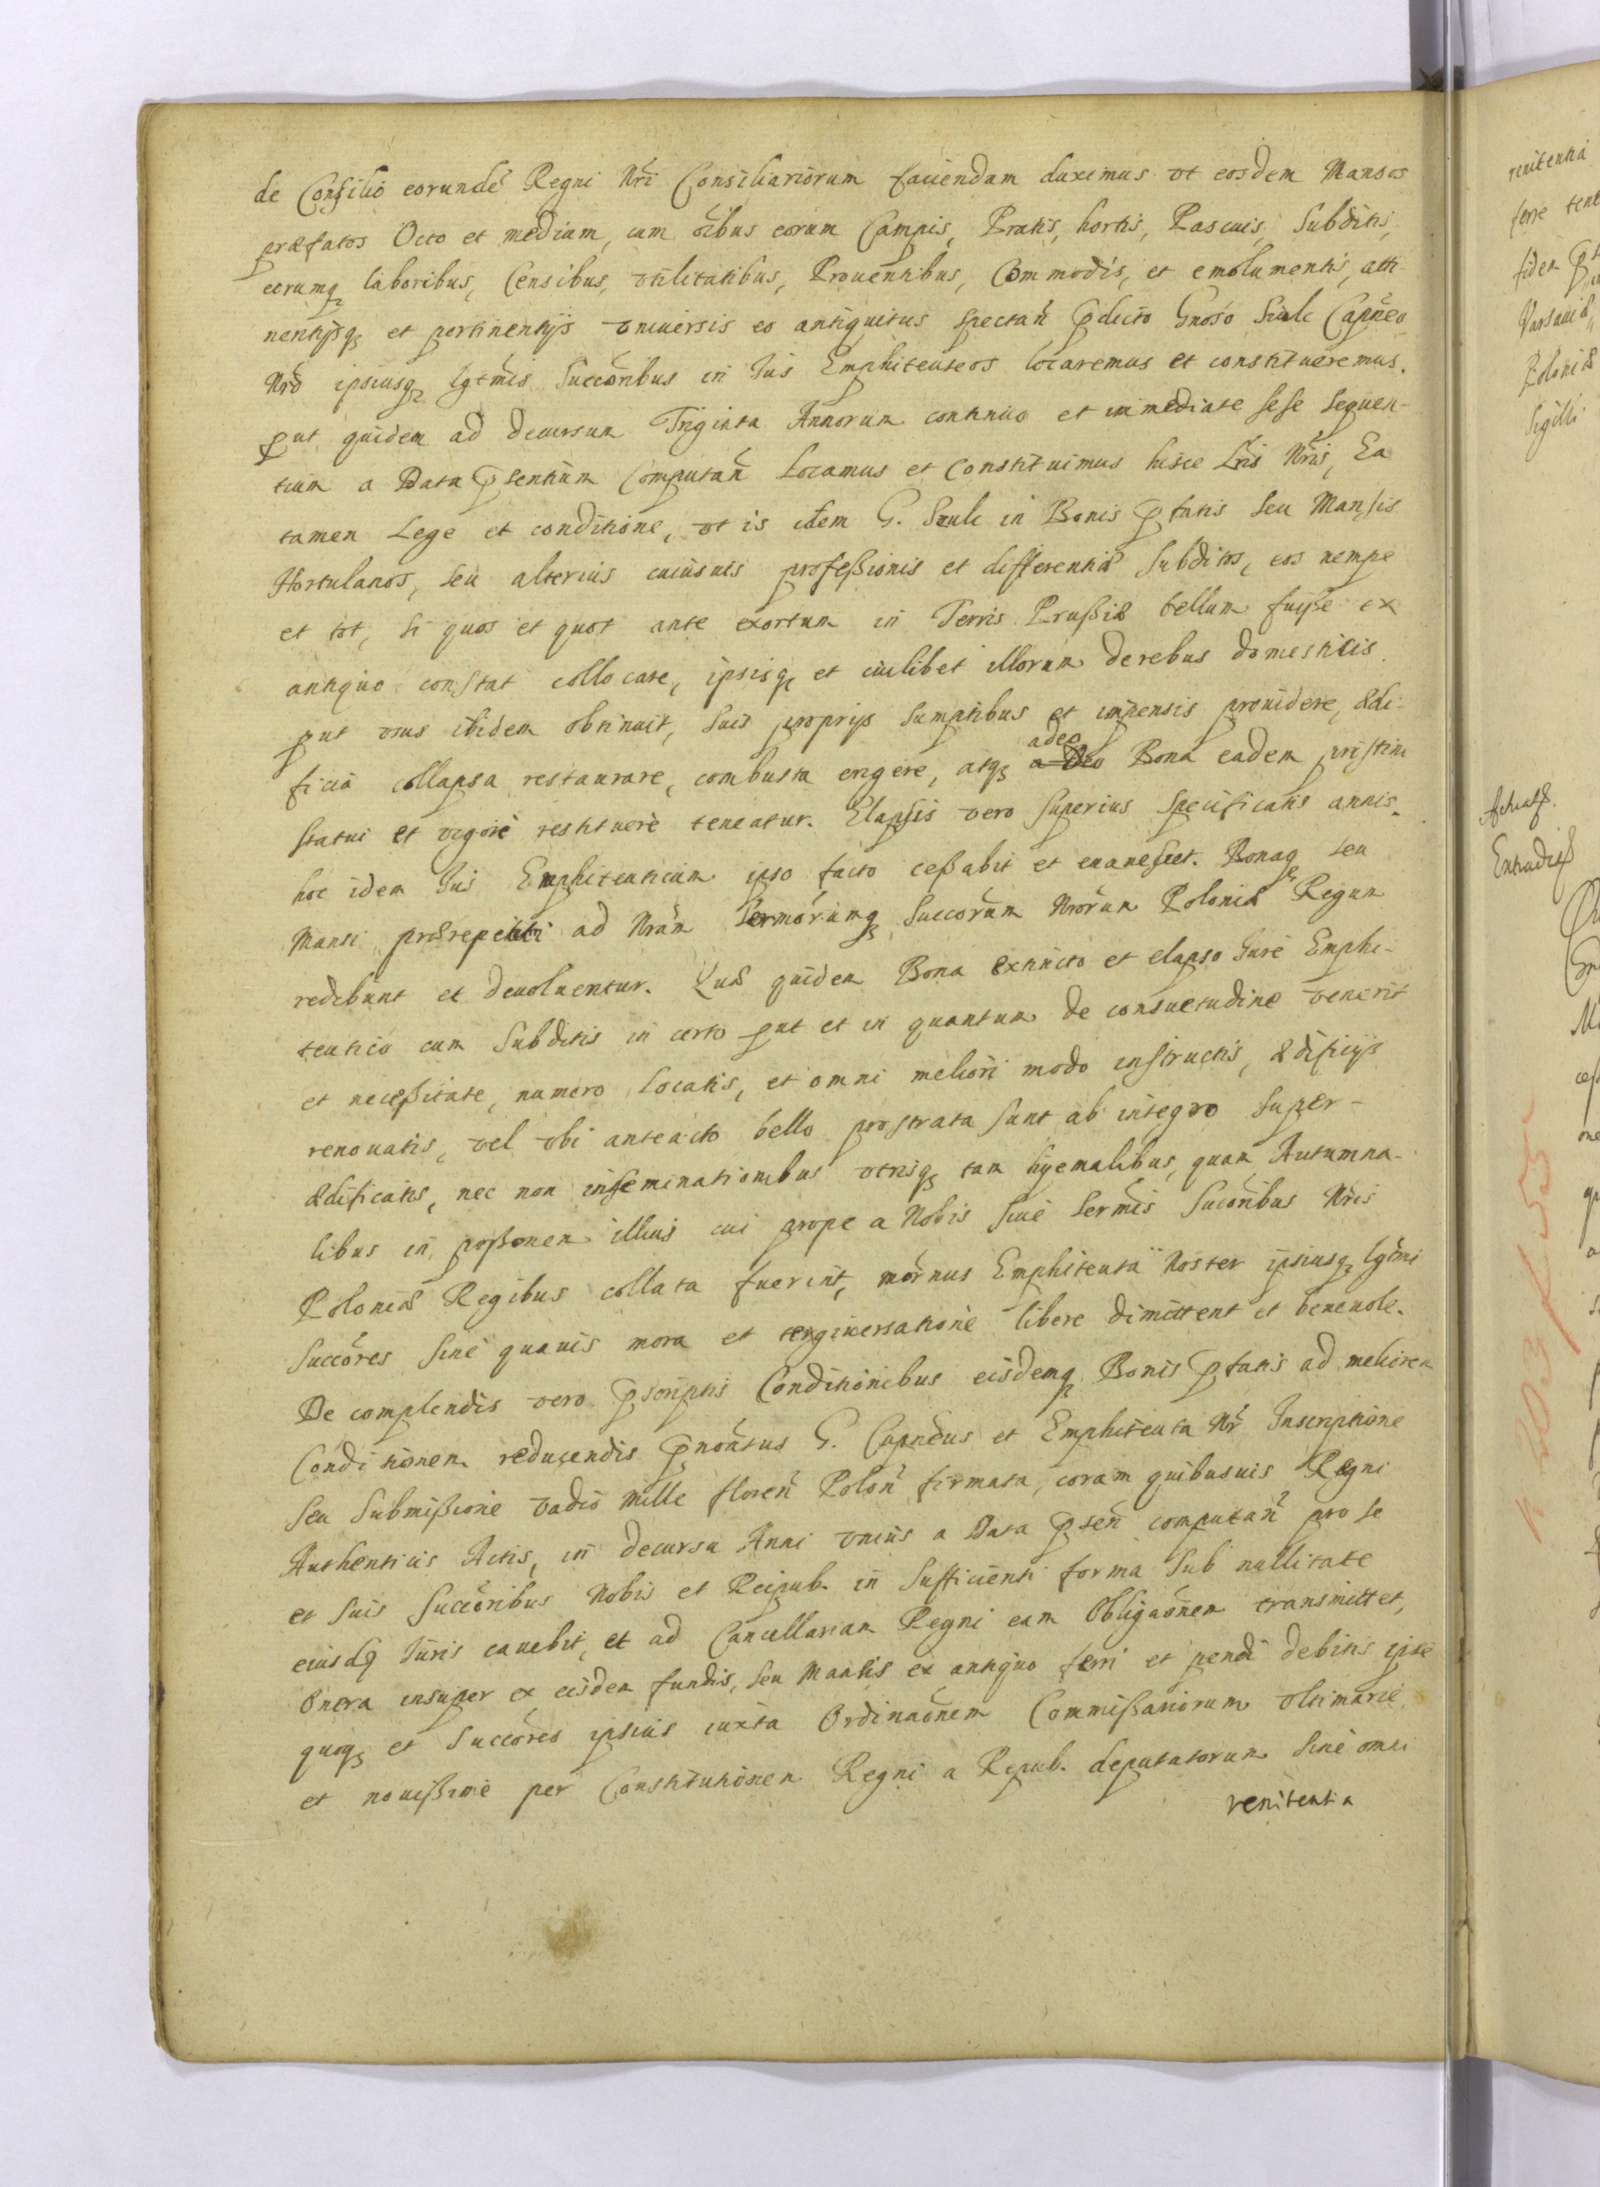 de Consilio eorundē Regni Nri Consiliariorum faciendam duximus vt eosdem Mansos
præfatos Octo et mediam, cum oibus eorum Campis, Pratis, hortis, Pascuis, Subditis,
eorumq laboribus, Censibus, vtilitatibus, Prouentibus, Commodis, et emolumentis, atti-
nentijsq et pertinentijs vniuersis eo antiquitus spectan̄ pdicto Gnoso Szulc Capneo
Nro ipsiusq lgtmis Succoribus in Jus Emphiteuseos locaremus et constitueremus.
put quidem ad decursum Triginta Annorum continuo et immediate sese sequen-
tium a Data psentium Computan̄ Locamus et Constituimus hisce Lris Nris, Ea
tamen Lege et conditione, vt is idem G. Szulc in Bonis pfatis seu Mansis
Hortulanos, seu alterius cuiusuis profeßionis et differentiæ Subditos, eos nempe
et tot, si quos et quot ante exortum in Terris Prußiæ bellum fuiße ex
antiquo constat collocare, ipsisq et cuilibet illorum de rebus domesticis
put vsus ibidem obtinuit, suis proprijs sumptibus et impensis prouidere, ædi-
ficia collapsa restaurare, combusta erigere, atq adeo Bona eadem pristini
statui et vigori restituere teneatur. Elapsis vero superius specificatis annis.
hoc idem Jus Emphiteuticum ipso facto ceßabit et euanescet. Bonaq seu
Mansi prærepetiti ad Nram Sermorumq Succorum Nrorum Poloniæ Regum
redibunt et deuoluentur. Quæ quidem Bona extincto et elapso Jure Emphi-
teutico cum Subditis in certo put et in quantum de consuetudine venerit
et neceßitate, numero locatis, et omni meliori modo instructis, ædificijs
renouatis, vel vbi anteacto bello prostrata sunt ab integro super-
ædificatis, nec non inseminationibus vtrisq tam hyemalibus, quam Autumna-
libus in poßonem illius cui prope a Nobis siue Sermis Succoribus Nris
Poloniæ Regibus collata fuerint, mornus Emphiteuta Noster ipsiusq lgtmi
Succores sine quauis mora et tergiuersatione libere dimittent et beneuole.
De complendis vero pscriptis Conditionibus eisdemq Bonis pfatis ad meliorem
Conditionem reducendis pnoātus G. Capneus et Emphiteuta Nr Inscriptione
seu submißione vadio mille floren̄ Polon̄ firmata, coram quibusuis Regni
Authenticis Actis, in decursu Anni vnius a Data psen̄ computan̄ pro se
et suis Succoribus Nobis et Reipub. in sufficienti forma sub nullitate
eiusdq Juris cauebit, et ad Cancellariam Regni eam Obligaonem transmittet,
Onera insuper ex eisdem fundis, seu Mansis ex antiquo ferri et pendi debitis ipse
quoq et Succores ipsius iuxta Ordinaonem Commißariorum vltimarie
et nouißime per Constitutionem Regni a Repub. deputatorum sine omni
renitentia
renitentia
Varsauiæ,
Poloniæ
Sigilli